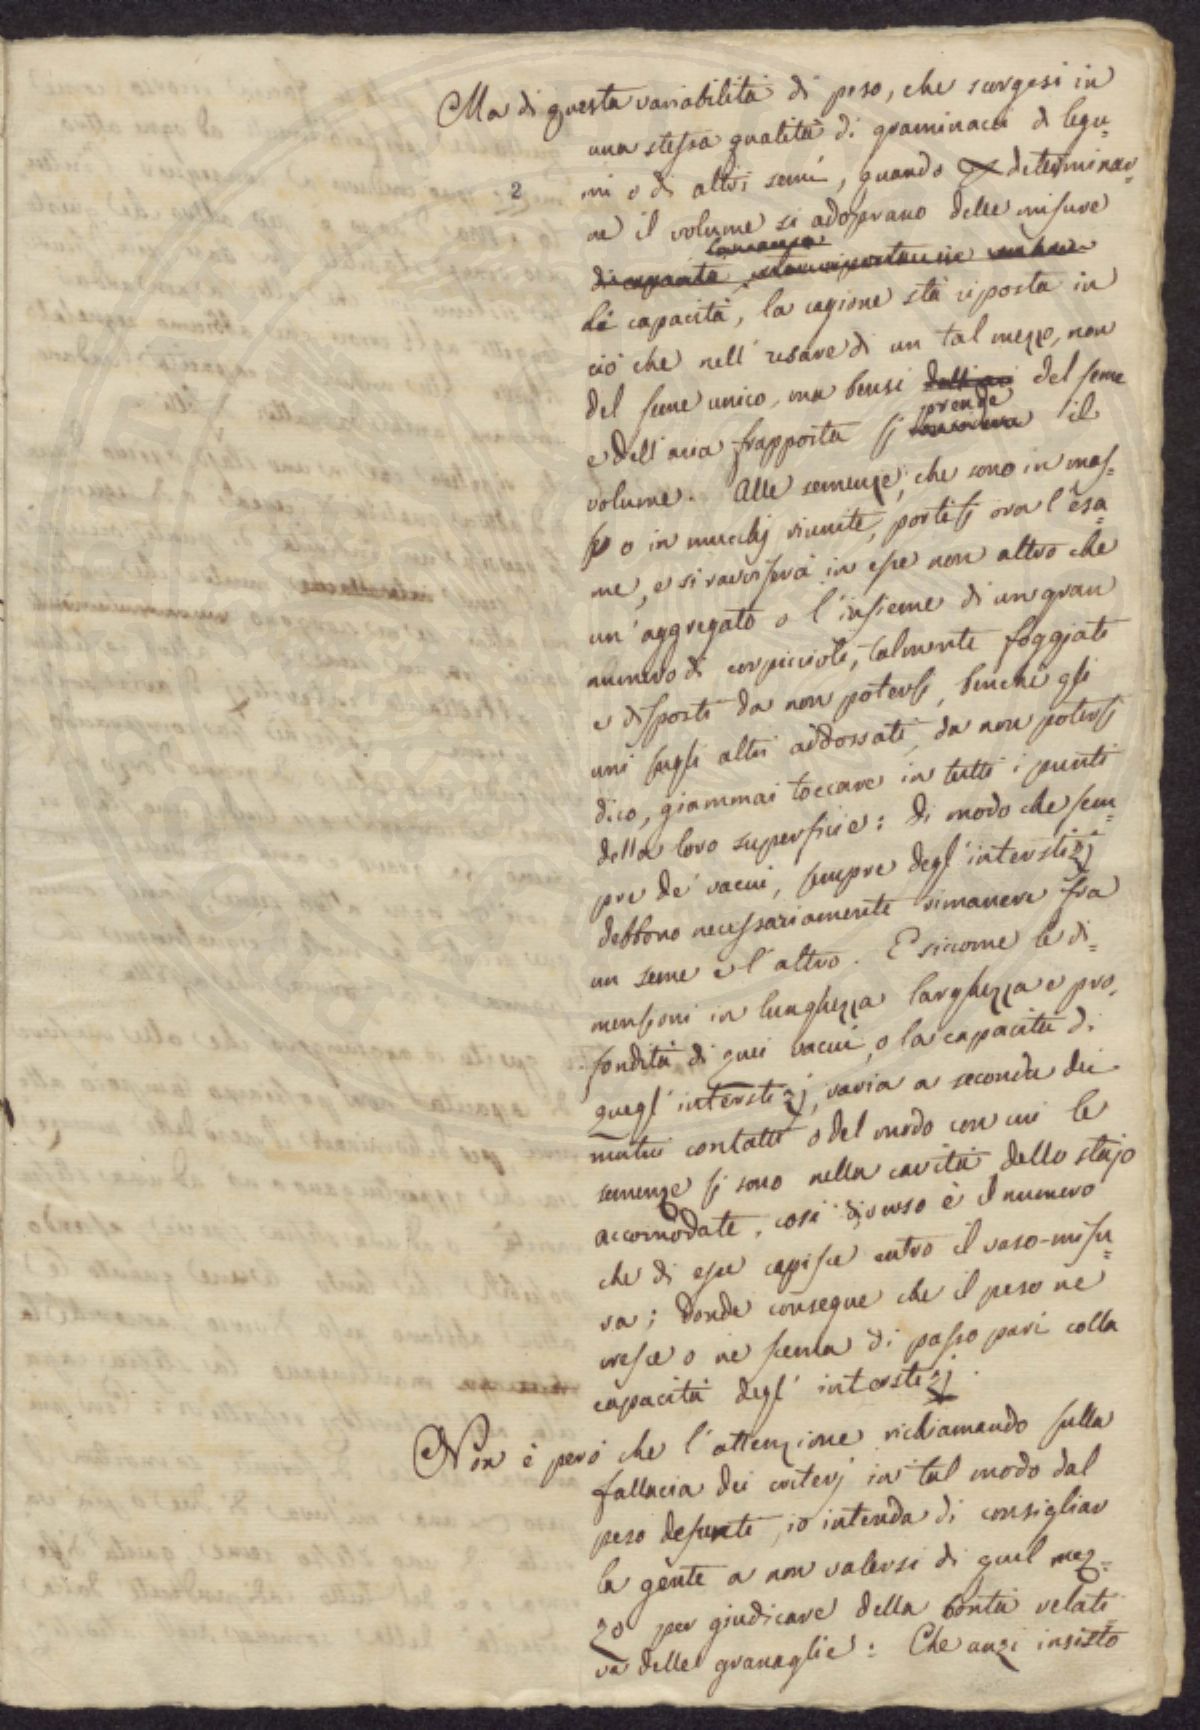 Ma di questa variabilità di peso, che scorgesi in
una stessa qualità di graminacei di legu=
2
mi o di altri semi, quando a determinar=
ne il volume si adoprano delle misure
di capacità
dè capacità, la cagione stà riposta in
ciò che nell' usare di un tal mezzo, non
del seme unico, ma bensi del seme
prende
e dell' aria frapposta si il
volume. Alle semenze, che sono in mas=
se o in mucchj riunite, portisi ora l' esa=
me, e si ravviserà in esse non altro che
un' aggregato o l' insieme di un gran
numero di corpiccioli, talmente foggiati
e disposti da non potersi, benchè gli
uni sugli altri addossati, da non potersi
dico, giammai toccare in tutti i punti
della loro superficie: di modo che sem=
pre de' vacui, sempre degl' interstizj
debbono necessariamente rimanere fra
un seme e l' altro. E siccome le di=
mensioni in lunghezza larghezza e pro=
fondità di quei vacui, o la capacità di
quegl' interstizj, varia a seconda dei
mutui contatti o del modo con cui le
semenze si sono nella cavità dello stajo
accomodate, così diverso è il numero
che di esse capisce entro il vaso-misu=
ra; donde consegue che il peso ne
cresce o ne scema di passo pari colla
capacità degl' interstizj.
Non è però che l' attenzione richiamando sulla
fallacia dei criterj in tal modo dal
peso desunti, io intenda di consigliar
la gente a non valersi di quel mez=
zo per giudicare della bontà relati
va delle granaglie: Che anzi insisto